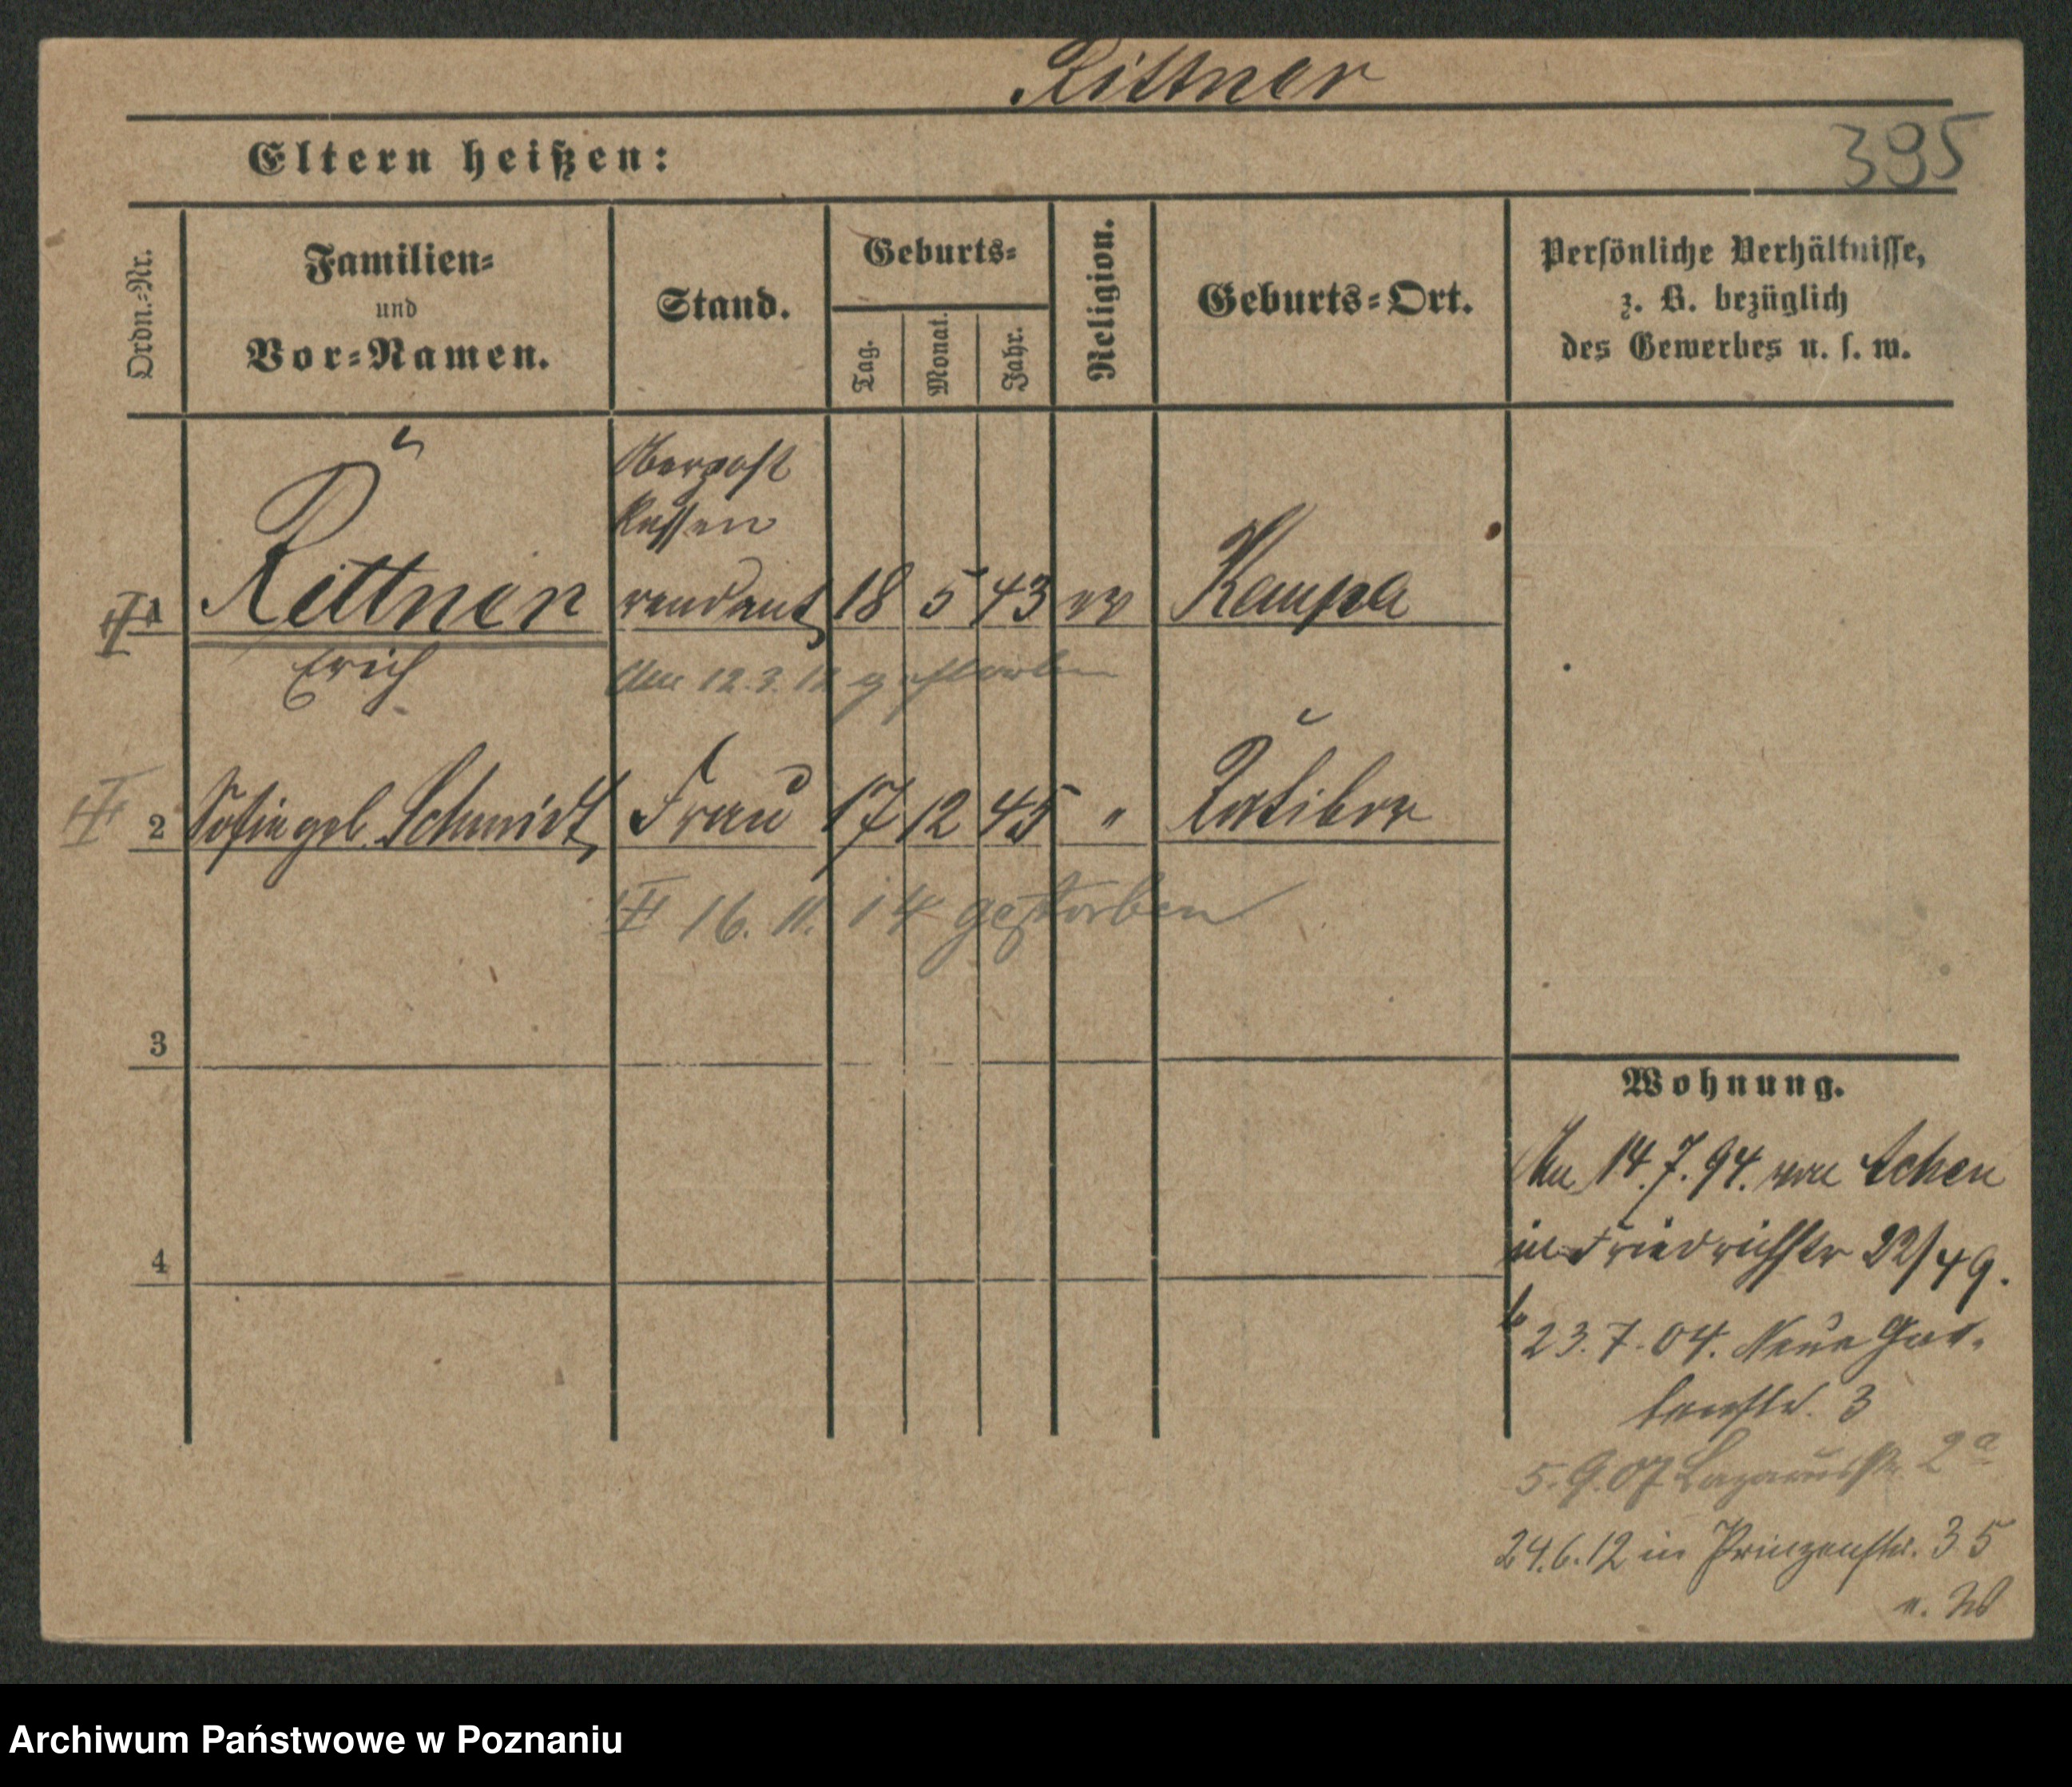 Rittner
Eltern heißen:
395
Ordn.-Nr.
Familien-
und
Vor-Namen.
Stand.
Geburts-
Tag.
Monat.
Jahr.
Religion.
Geburts-Ort.
Persönliche Verhältnisse,
z. B. bezüglich
des Gewerbes u. s. w.
Oberpost
kassen
1 Rittner rendant 18 5 43 ev Kempa
Erich
Am 12.3.12 gestorben
2 Sofie geb. Schmidt Frau 17 12 45 " Ratibor
16. 11. 14 gestorben
3
4
Wohnung.
An 14.7.94. von Achen
in Friedrichstr 22/49.
23.7.04. Neue Gar-
tenstr. 3
5.9.07 Lazarusstr. 2a
24.6.12 in Prinzenstr. 35
Archiwum Państwowe w Poznaniu